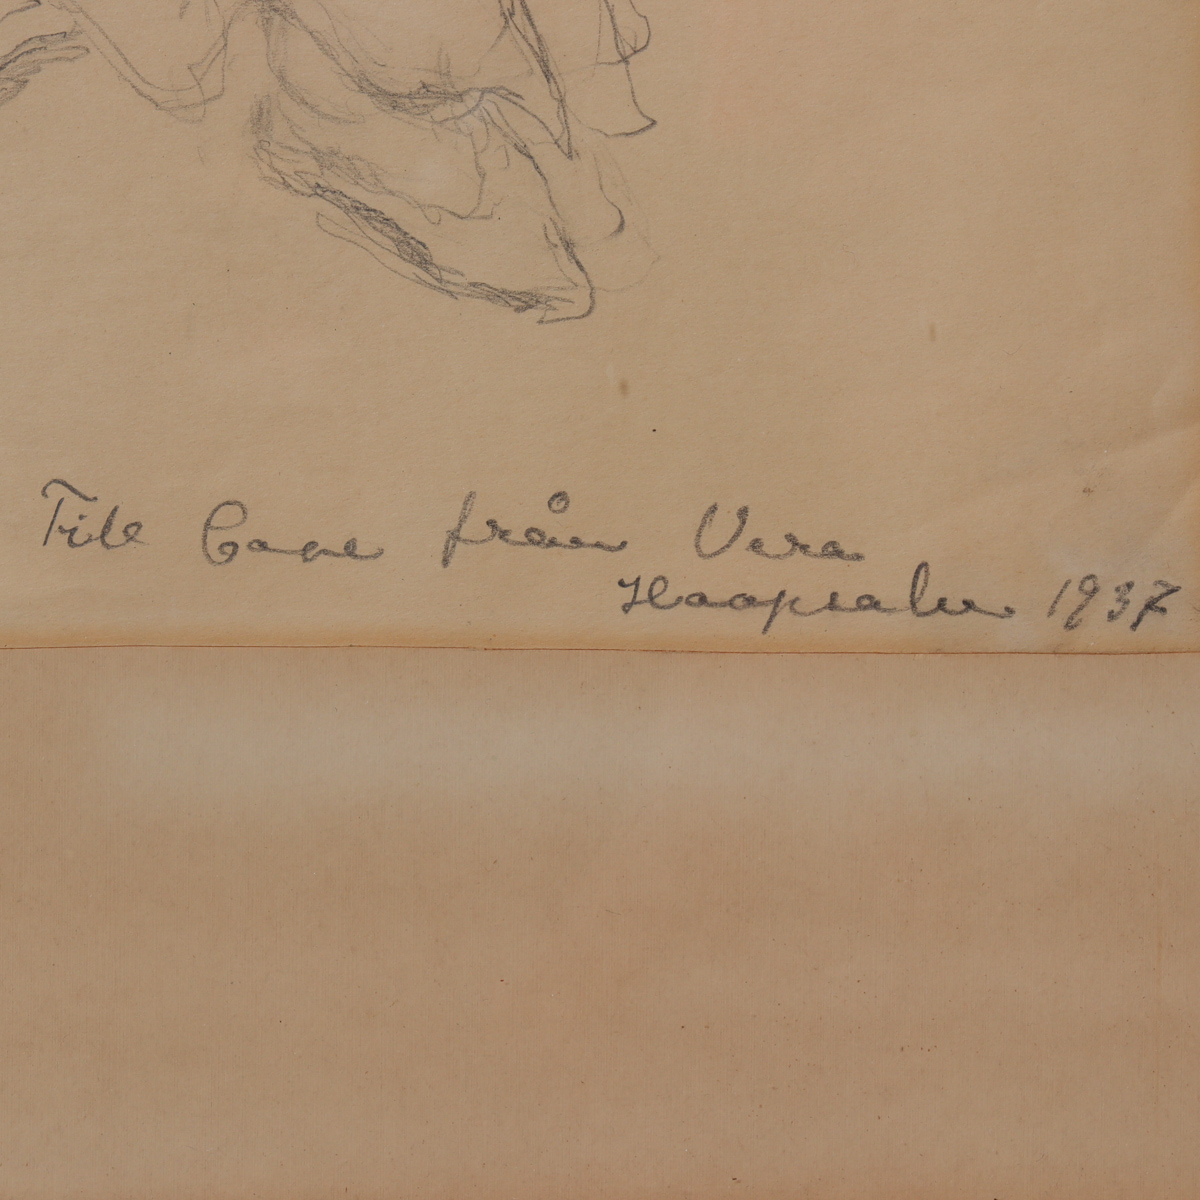 Till från Vera
Haapsalu 1937